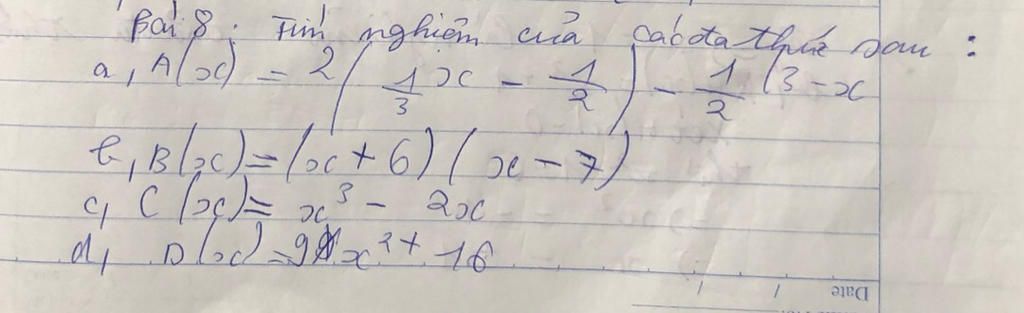 Bài 8 : Tìm nghiệm của các đa thức sau :
a, A(x) = 2( 1/3 x - 1/2 ) - 1/2 (3 - x
b, B(x) = (x + 6) ( x - 7)
c, C (x) = x³ - 2x
d, D (x) = 9x² + 16
Date / /